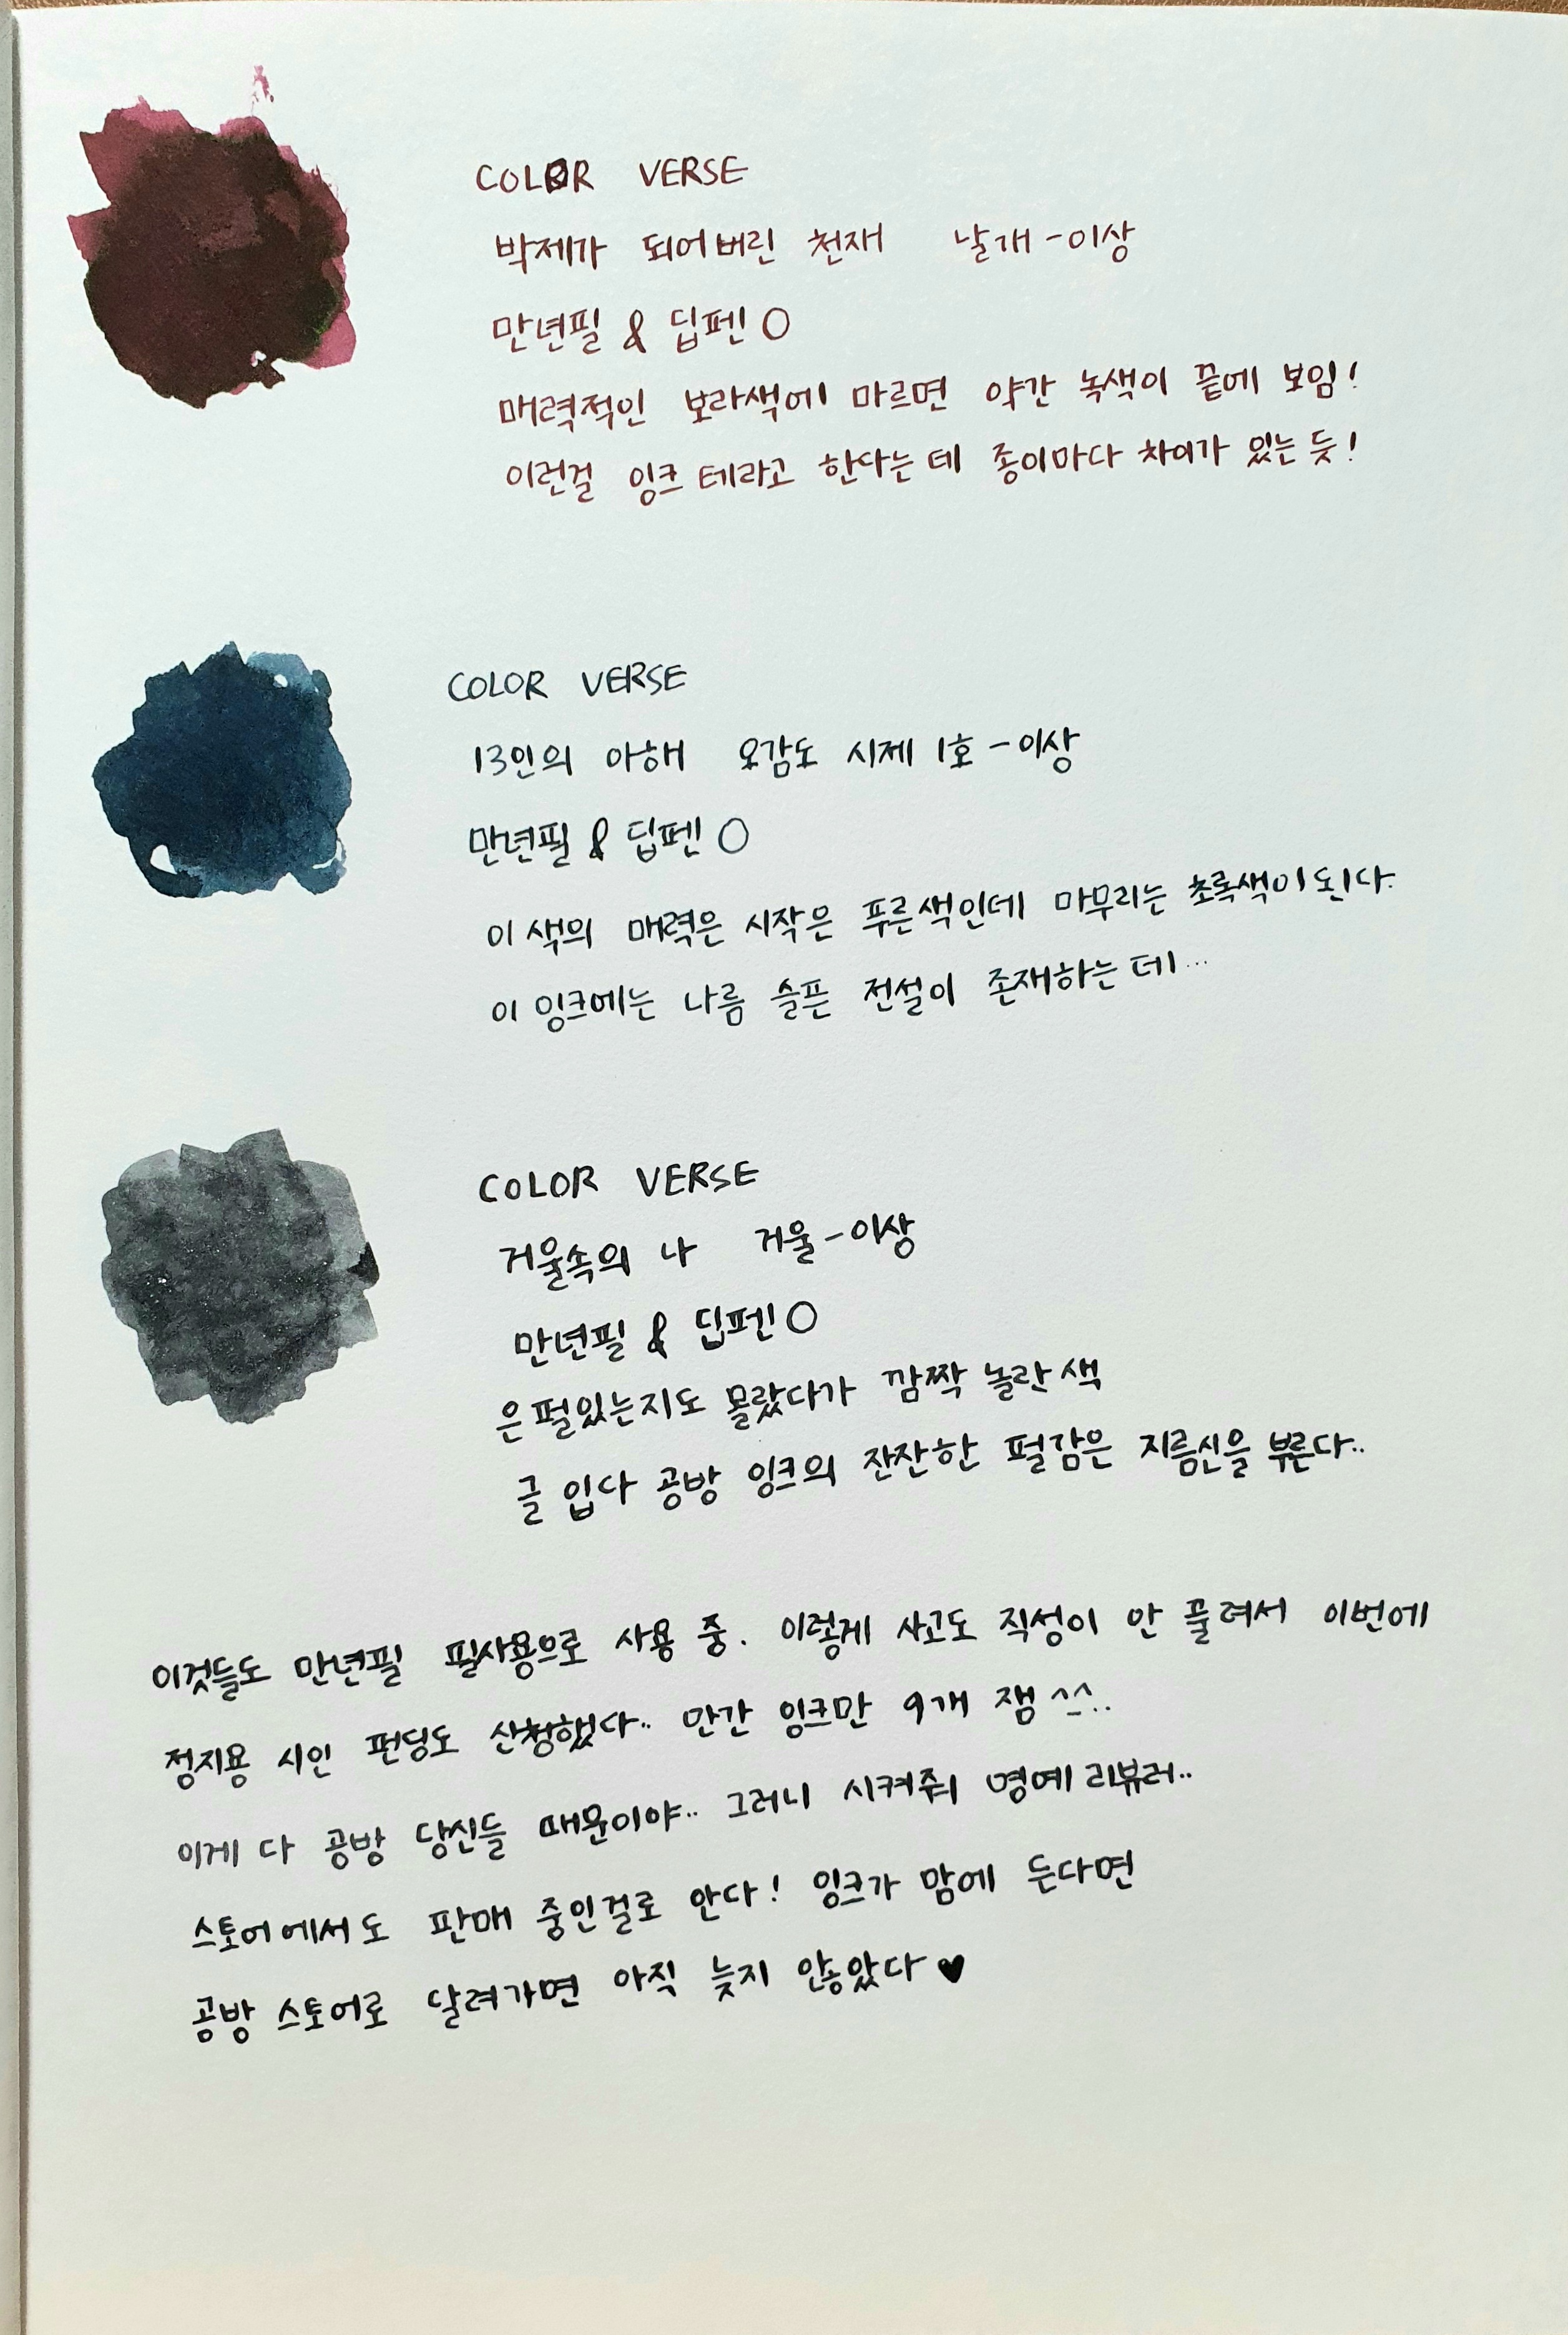 COLOR VERSE
박제가 되어버린 천재 날개-이상
만년필 & 딥펜 O
매력적인 보라색에 마르면 약간 녹색이 끝에 보임!
이런걸 잉크 테라고 한다는데 종이마다 차이가 있는 듯!
COLOR VERSE
13인의 아해 오감도 시제 1호-이상
만년필 & 딥펜 O
이 색의 매력은 시작은 푸른색인데 마무리는 초록색이 된다.
이 잉크에는 나름 슬픈 전설이 존재하는데...
COLOR VERSE
거울속의 나 거울-이상
만년필 & 딥펜 O
은펄있는지도 몰랐다가 깜짝 놀란 색
글 입다 공방 잉크의 잔잔한 펄감은 지름신을 부른다..
이것들도 만년필 필사용으로 사용 중. 이렇게 사고도 직성이 안 풀려서 이번에
정지용 시인 펀딩도 신청했다.. 만간 잉크만 9개 잼 ^^..
이게 다 공방 당신들 때문이야.. 그러니 시켜줘 명예 리뷰러..
스토어에서도 판매 중인걸로 안다! 잉크가 맘에 든다면
공방 스토어로 달려가면 아직 늦지 않았다♥